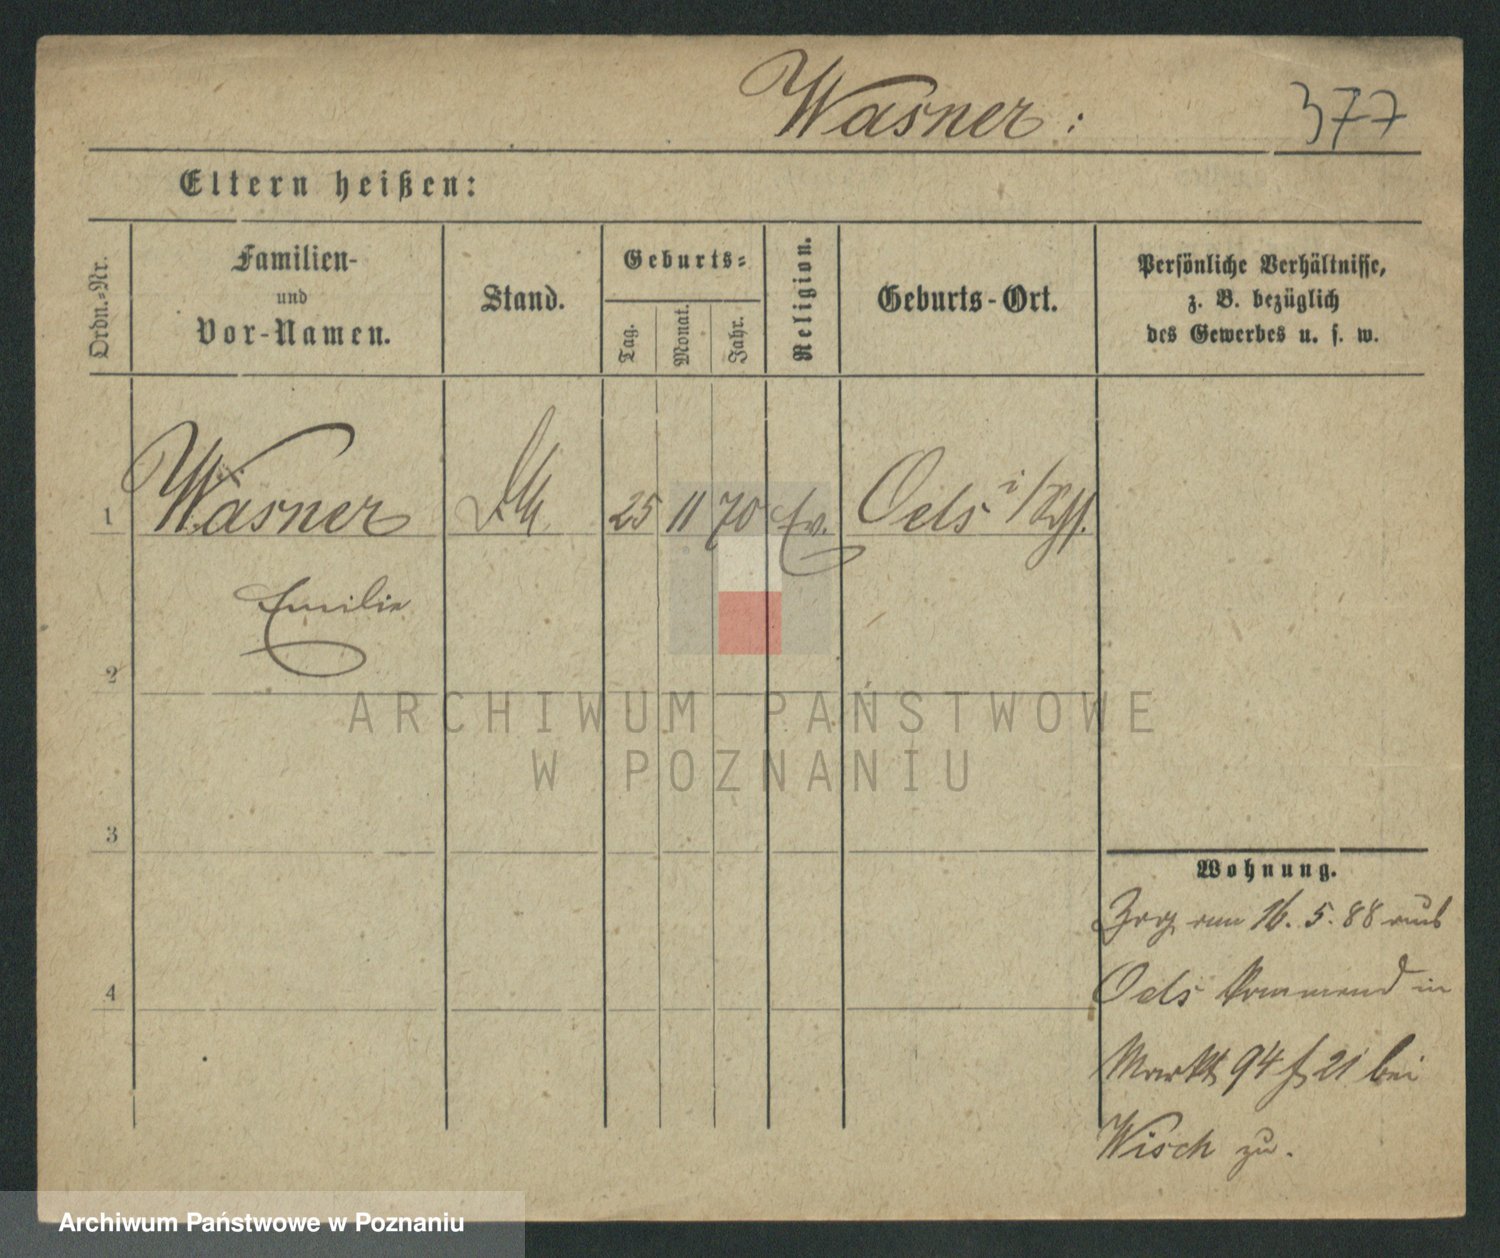 Wasner: 377
Eltern heißen:
Ordn.-Nr.
Familien-
und
Vor-Namen.
Stand.
Geburts-
Tag.
Monat.
Jahr.
Religion.
Geburts-Ort.
Persönliche Verhältnisse,
z. B. bezüglich
des Gewerbes u. s. w.
1 Wasner 25 11 70 Ev. Oels i/Schl.
Emilie
2
3
4
Wohnung.
Zog am 16. 5. 88 aus
Oels kommend in
Markt 94 21 bei
Wisch zu.
ARCHIWUM PAŃSTWOWE
W POZNANIU
Archiwum Państwowe w Poznaniu